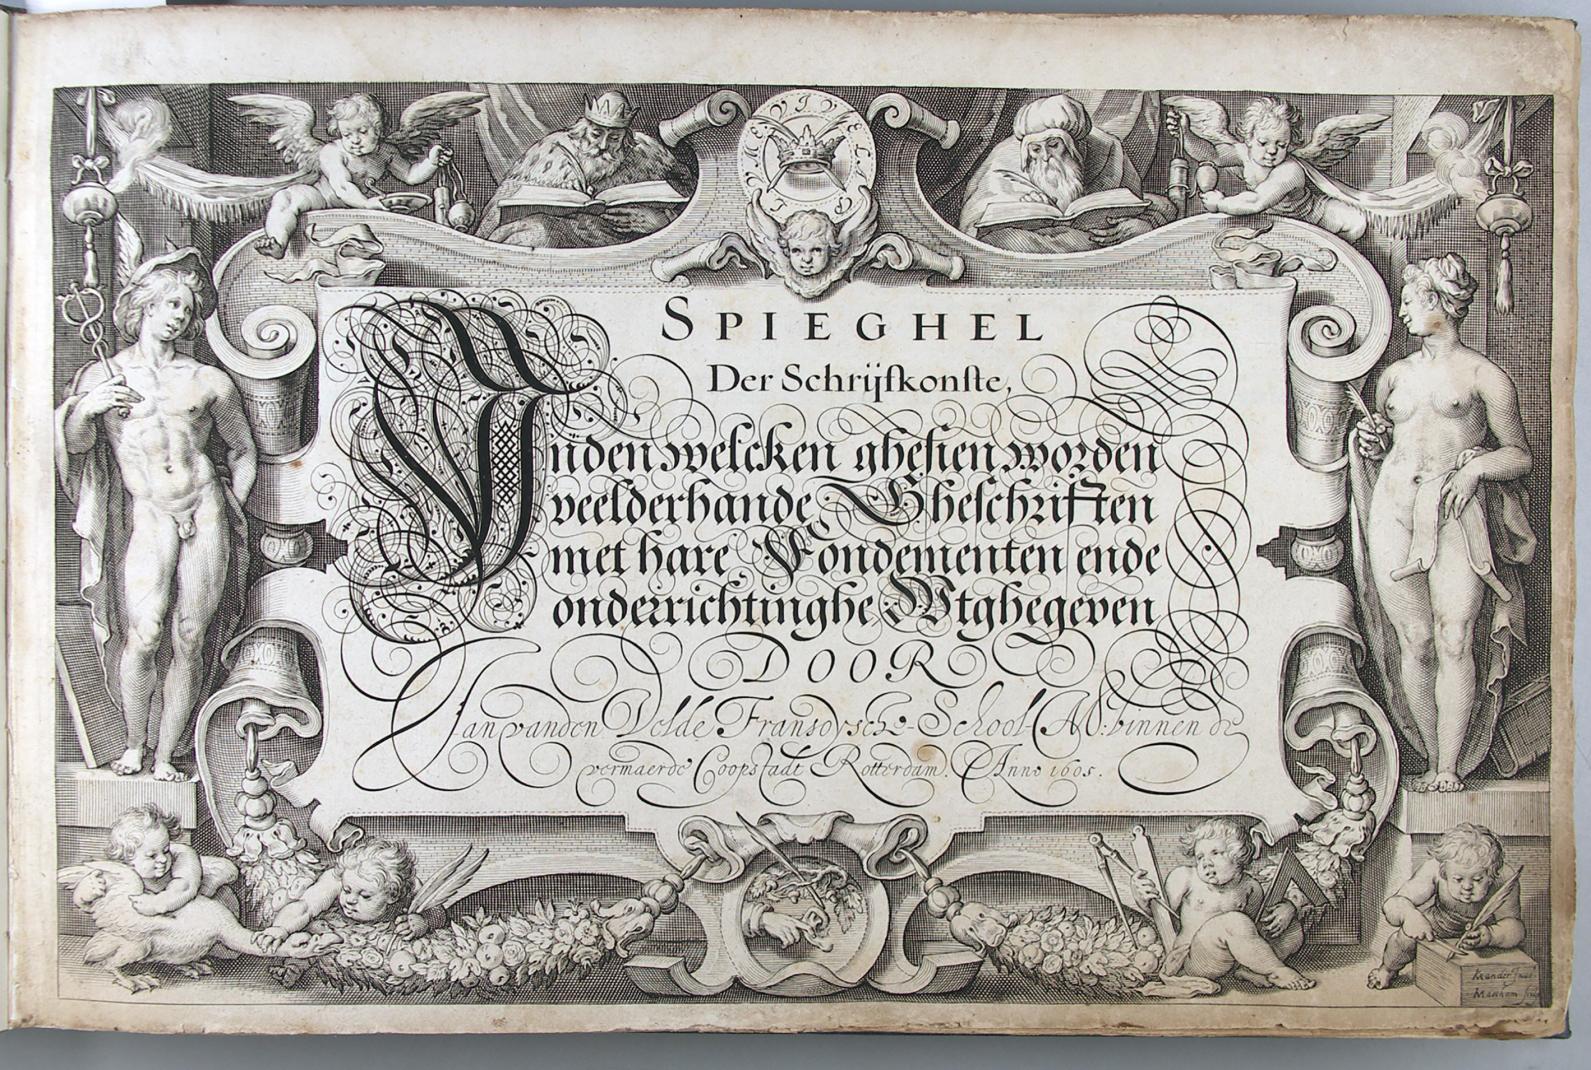 VIVE LE JEU
SPIEGHEL
Der Schrijfkonste,
Inden welcken ghesien worden
veelderhande Gheschriften
met hare Fondementen ende
onderrichtinghe Wtghegeven
DOOR
Jan vanden Velde Fransoysche-School-M: binnen de
vermaerde Coopstadt Rotterdam. Anno 1605.
Mander
Matham